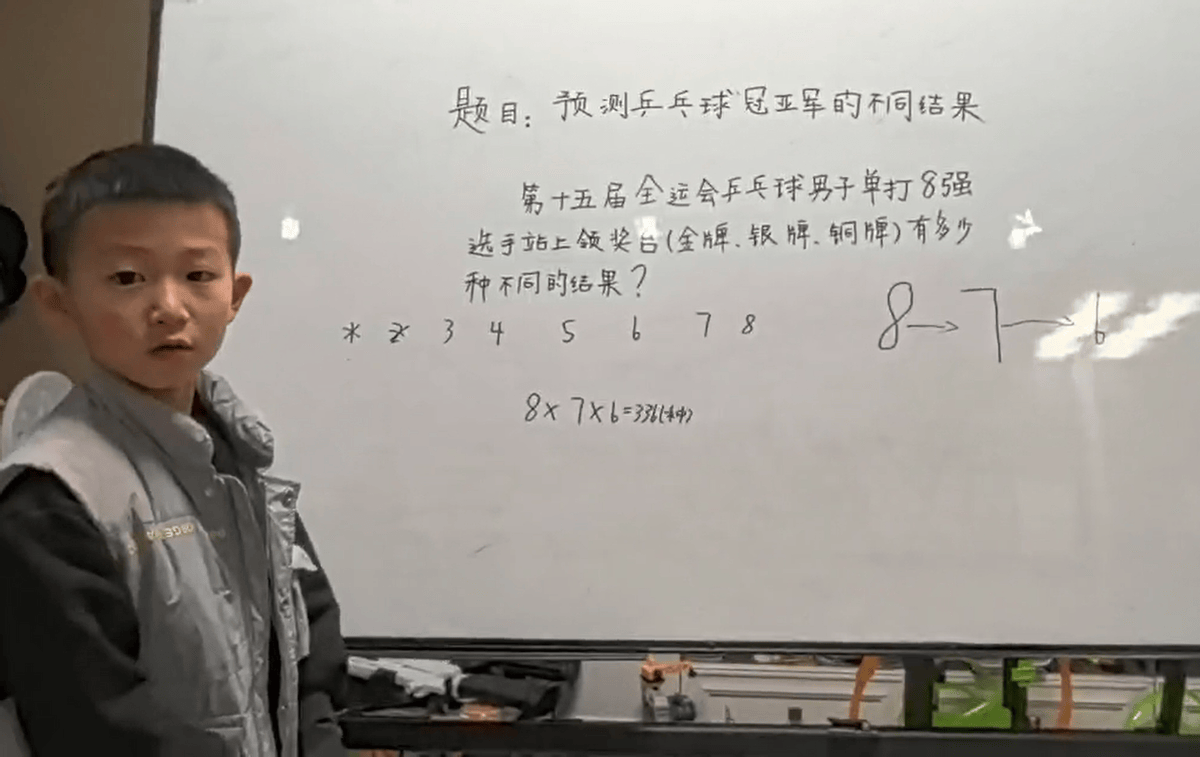 题目：预测乒乓球冠亚军的不同结果
第十五届全运会乒乓球男子单打8强
选手站上领奖台(金牌、银牌、铜牌)有多少
种不同的结果？
3 4 5 6 7 8
8→7→6
8×7×6=336(种)